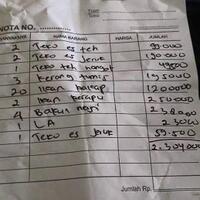 Tuan
Toko
NOTA NO.
BANYAKNYA NAMA BARANG HARGA JUMLAH
2 Teko es teh 99000
2 Teko es Jeruk 130000
1 Teko teh hangat 49500
3 kerang tumis 195000
20 Ikan 1200000
2 Ikan kerapu 250000
4 Bakul nasi 238000
1 LA
1 Teko es Jeruk 59.500
2.304.000
Jumlah Rp.